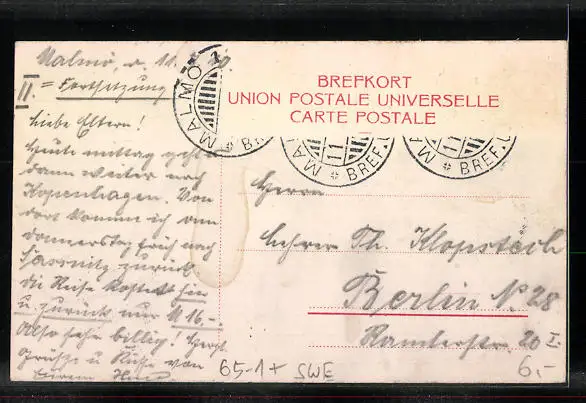 Malmö, d. 11.
II = Fortsetzung
Liebe Eltern!
Heute mittag geht's
dann weiter nach
Kopenhagen. Von
dort komm ich am
donnerstag früh nach
Sassnitz zurück
die Reise kostet hin
u. zurück nur M 16.-.
Also sehr billig! Herzl.
Grüße u. Küsse von
Eurem
MALMÖ 1
BREF.
11
BREF.
MA
11
BREF.U
BREFKORT
UNION POSTALE UNIVERSELLE
CARTE POSTALE
Herrn
Lehrer Th. Klopstech
Berlin N 28
Ramlerstr. 20 I.
65-1+ SWE
6,-